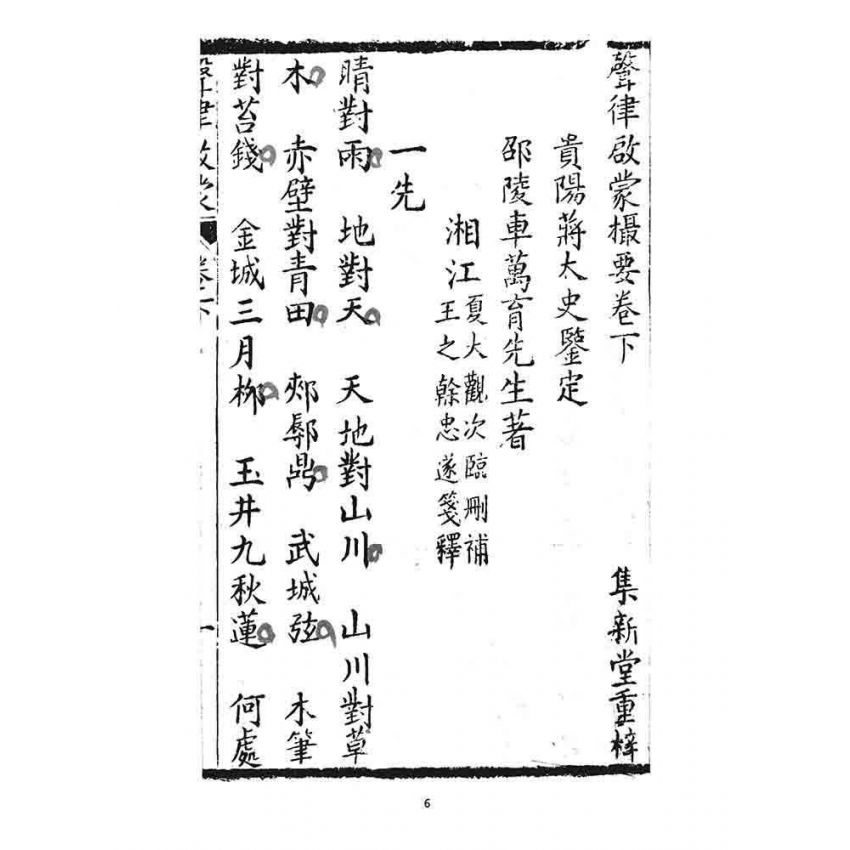 聲律啟蒙撮要卷下　集新堂重梓
貴陽蔣太史鑒定
邵陵車萬育先生著
湘江
夏大觀次臨刪補
王之榦忠遂箋釋
一先
晴對雨　地對天　天地對山川　山川對草
木　赤壁對青田　郟鄏鼎　武城弦　木筆
對苔錢　金城三月柳　玉井九秋蓮　何處
聲律啟蒙　卷下　一
6